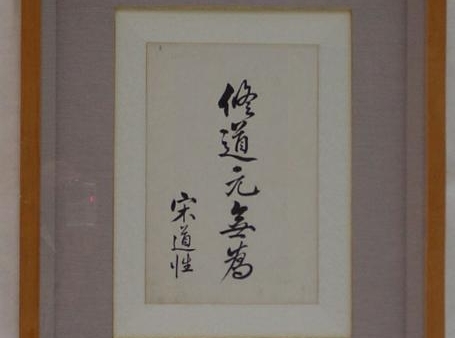 修道元無為
宋道性